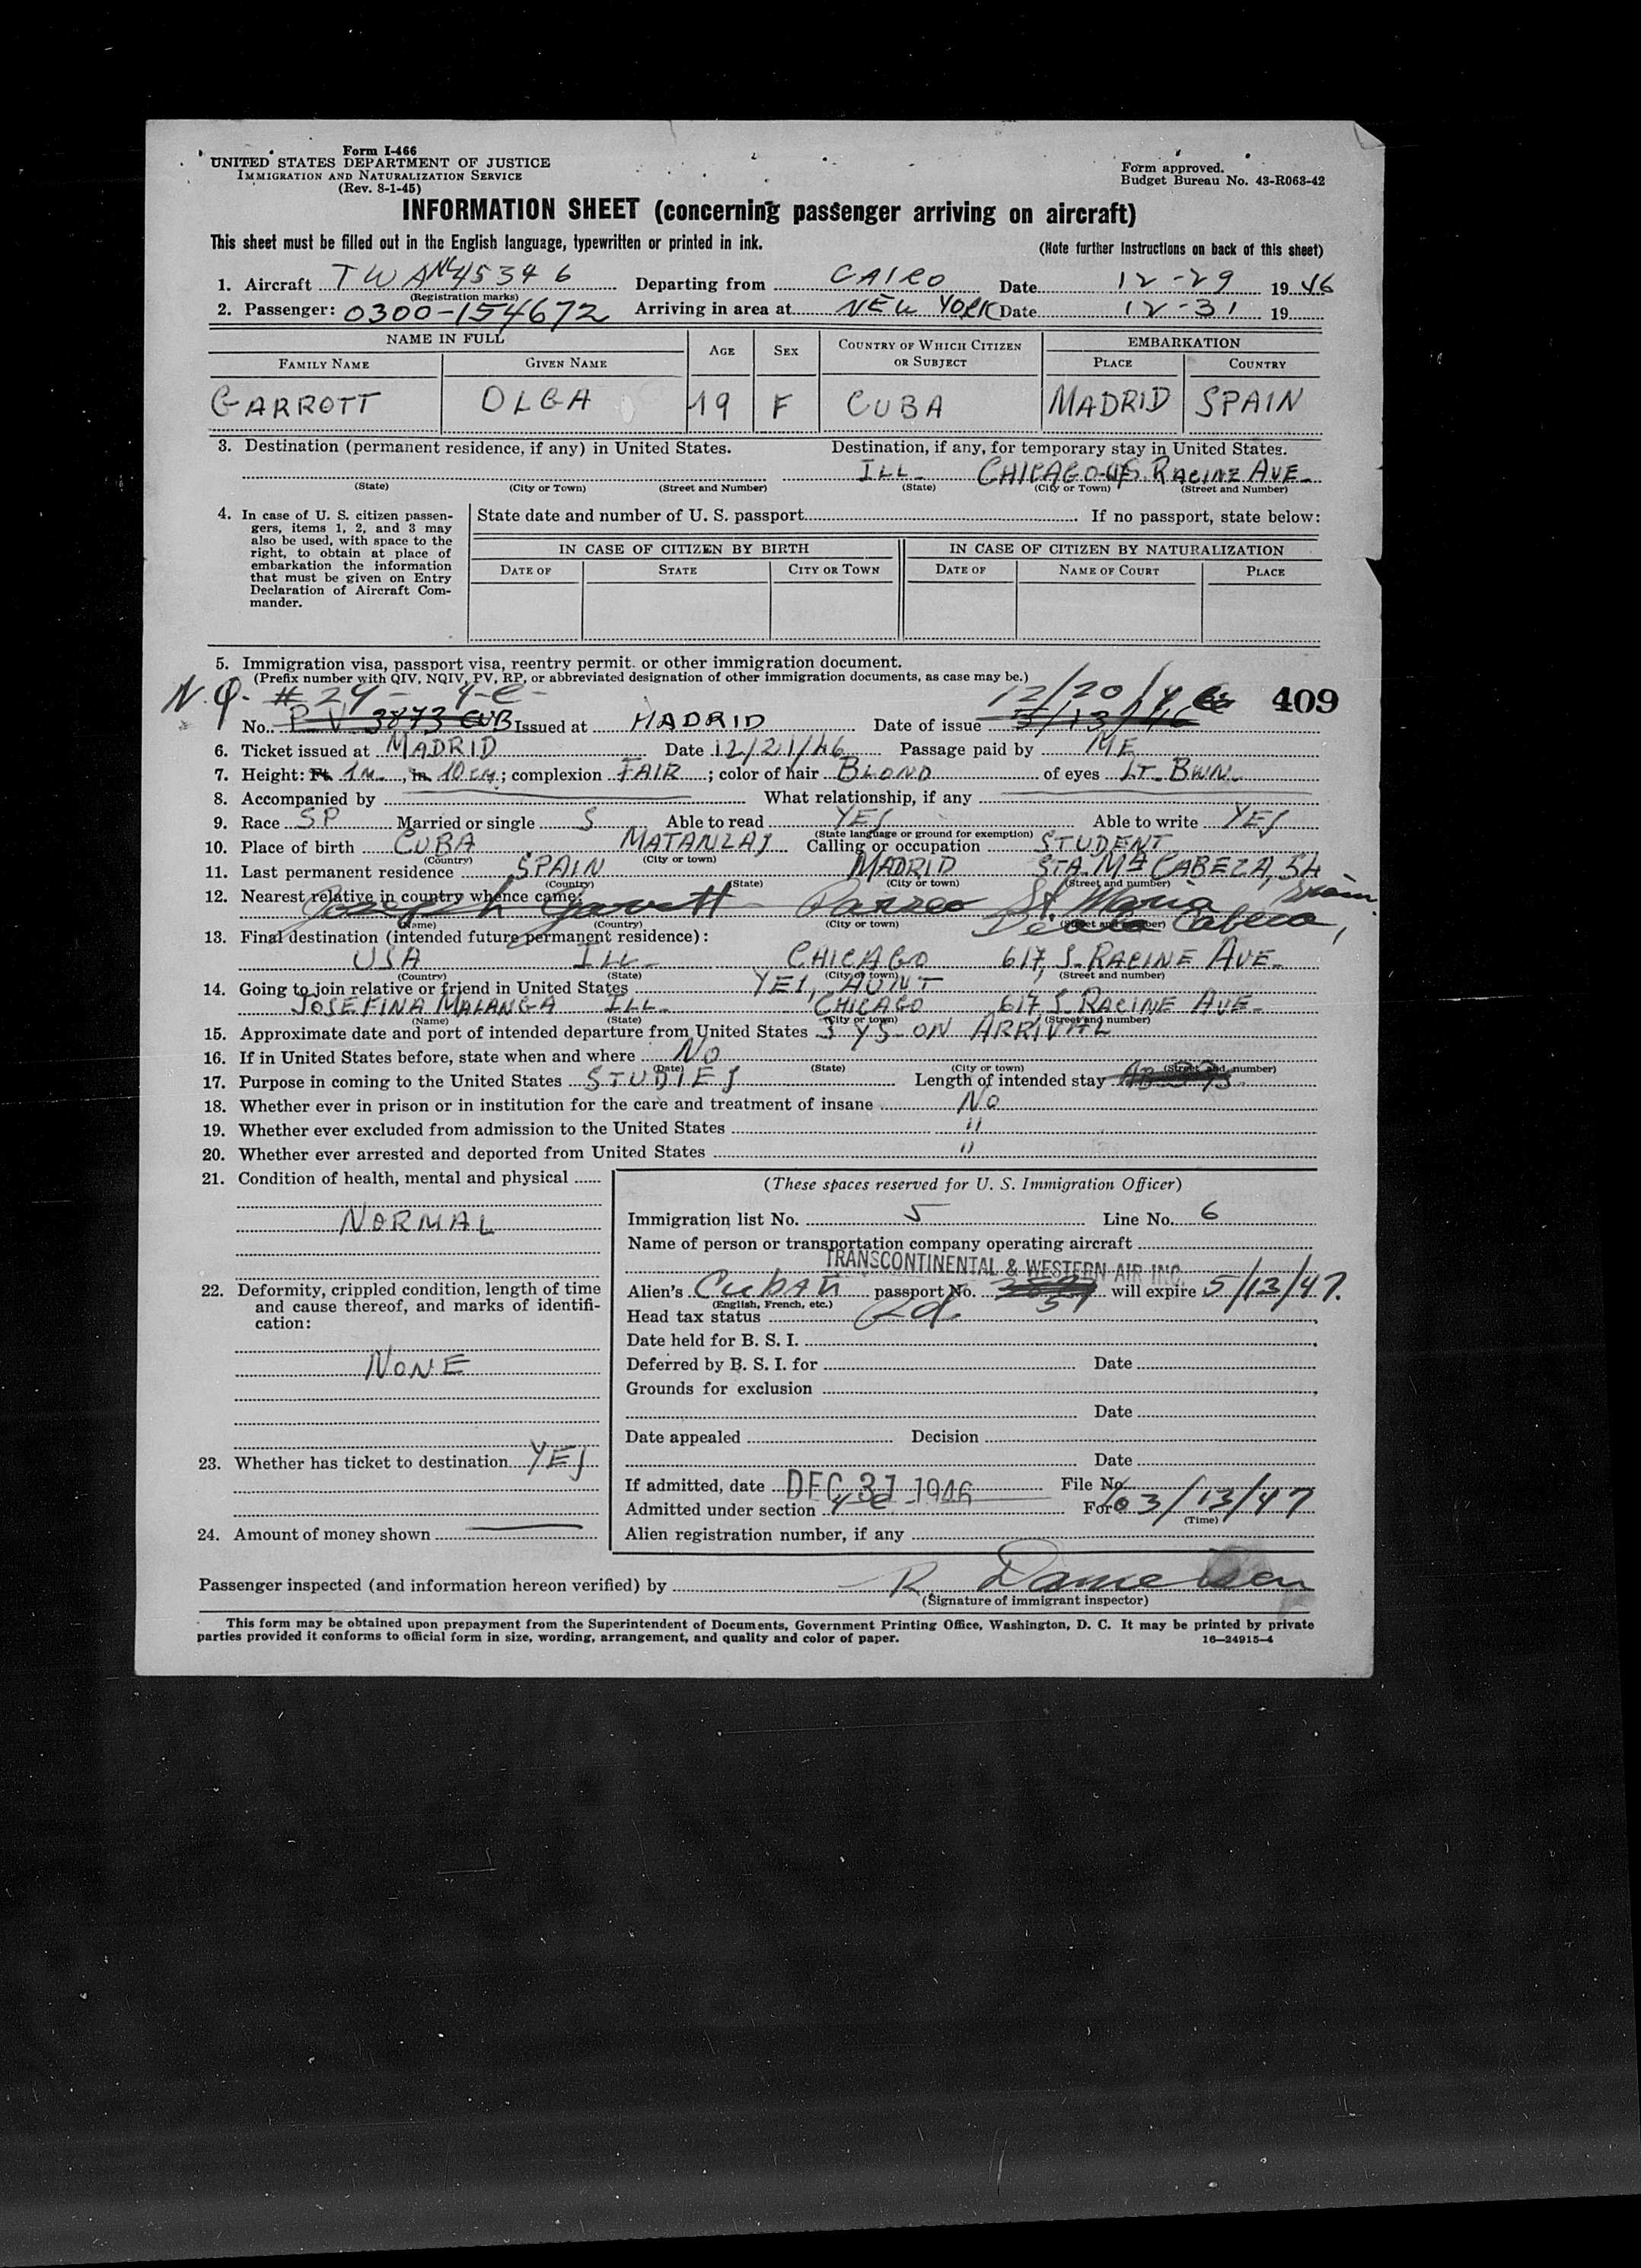 Form I-466
UNITED STATES DEPARTMENT OF JUSTICE
IMMIGRATION AND NATURALIZATION SERVICE
(Rev. 8-1-45)
Form approved.
Budget Bureau No. 43-R063-42
INFORMATION SHEET (concerning passenger arriving on aircraft)
This sheet must be filled out in the English language, typewritten or printed in ink.
(Note further instructions on back of this sheet)
1. Aircraft TWA NC 45346 Departing from CAIRO Date 12-29 1946
(Registration marks)
2. Passenger: 0300-154672 Arriving in area at NEW YORK Date 12-31 19
NAME IN FULL AGE SEX COUNTRY OF WHICH CITIZEN OR SUBJECT EMBARKATION
FAMILY NAME GIVEN NAME PLACE COUNTRY
GARROTT OLGA 19 F CUBA MADRID SPAIN
3. Destination (permanent residence, if any) in United States. Destination, if any, for temporary stay in United States.
ILL CHICAGO S. RACINE AVE.
(State) (City or Town) (Street and Number) (State) (City or Town) (Street and Number)
4. In case of U. S. citizen passengers, items 1, 2, and 3 may also be used, with space to the right, to obtain at place of embarkation the information that must be given on Entry Declaration of Aircraft Commander.
State date and number of U. S. passport If no passport, state below:
IN CASE OF CITIZEN BY BIRTH IN CASE OF CITIZEN BY NATURALIZATION
DATE OF STATE CITY OR TOWN DATE OF NAME OF COURT PLACE
5. Immigration visa, passport visa, reentry permit, or other immigration document.
(Prefix number with QIV, NQIV, PV, RP, or abbreviated designation of other immigration documents, as case may be.)
N.Q. # 29- 4-e- 12/20/46 409
No. PV 3873 CUB Issued at MADRID Date of issue 5/13/46
6. Ticket issued at MADRID Date 12/21/46 Passage paid by ME
7. Height: Ft. 1m., in. 10cm; complexion FAIR; color of hair BLOND of eyes LT. BWN.
8. Accompanied by What relationship, if any
9. Race SP Married or single S Able to read YES Able to write YES
(State language or ground for exemption)
10. Place of birth CUBA MATANZAS Calling or occupation STUDENT
(Country) (City or town)
11. Last permanent residence SPAIN MADRID STA. Mª CABEZA, 54
(Country) (State) (City or town) (Street and number)
12. Nearest relative in country whence came: Joseph Garrott Paseo St Maria Spain
De La Cabeca,
(Name) (Country) (City or town) (Street and number)
13. Final destination (intended future permanent residence):
USA ILL- CHICAGO 617, S. RACINE AVE-
(Country) (State) (City or town) (Street and number)
14. Going to join relative or friend in United States YES, AUNT
JOSEFINA MALANGA ILL- CHICAGO 617 S RACINE AVE-
(Name) (State) (City or town) (Street and number)
15. Approximate date and port of intended departure from United States 3 YS ON ARRIVAL
16. If in United States before, state when and where NO
(Date) (State) (City or town) (Street and number)
17. Purpose in coming to the United States STUDIES Length of intended stay
18. Whether ever in prison or in institution for the care and treatment of insane NO
19. Whether ever excluded from admission to the United States "
20. Whether ever arrested and deported from United States "
21. Condition of health, mental and physical
NORMAL
22. Deformity, crippled condition, length of time and cause thereof, and marks of identification:
NONE
23. Whether has ticket to destination YES
24. Amount of money shown
(These spaces reserved for U. S. Immigration Officer)
Immigration list No. 5 Line No. 6
Name of person or transportation company operating aircraft
TRANSCONTINENTAL & WESTERN AIR INC.
Alien's Cuban passport No. 59 will expire 5/13/47.
(English, French, etc.)
Head tax status
Date held for B. S. I.
Deferred by B. S. I. for Date
Grounds for exclusion
Date
Date appealed Decision
Date
If admitted, date DEC 31 1946 File No.
Admitted under section 4-e- For to 3/13/47
(Time)
Alien registration number, if any
Passenger inspected (and information hereon verified) by R. Danielsen
(Signature of immigrant inspector)
This form may be obtained upon prepayment from the Superintendent of Documents, Government Printing Office, Washington, D. C. It may be printed by private
parties provided it conforms to official form in size, wording, arrangement, and quality and color of paper. 16—24915-4